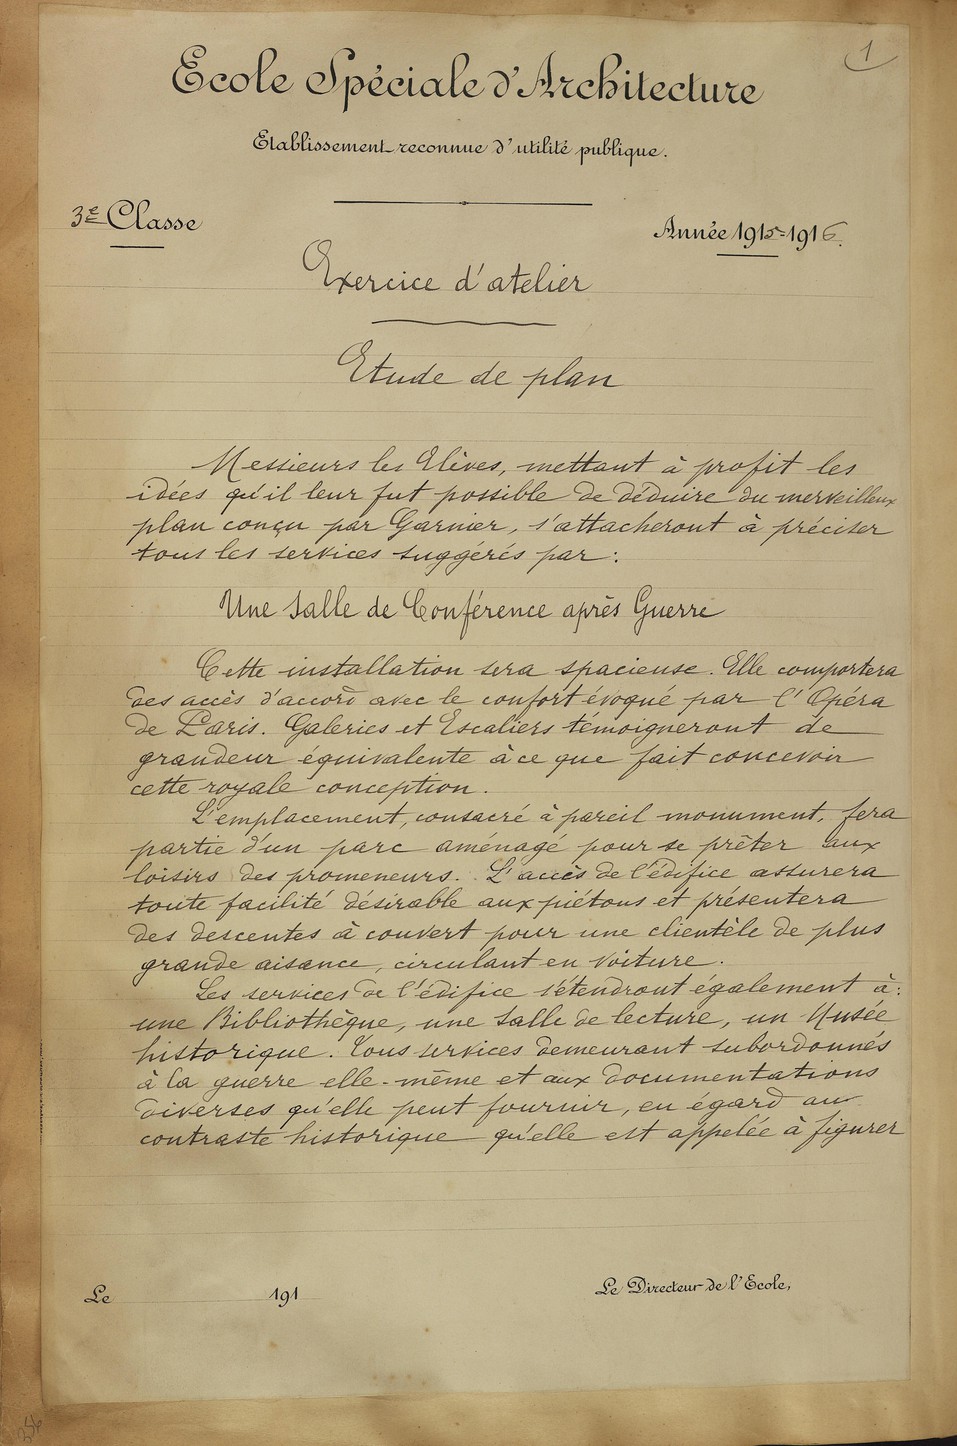 1
Ecole Spéciale d'Architecture
Etablissement reconnue d'utilité publique.
3e Classe
Année 1915-1916.
Exercice d'atelier
Etude de plan
Messieurs les Elèves, mettant à profit les
idées qu'il leur fut possible de déduire du merveilleux
plan conçu par Garnier, s'attacheront à préciser
tous les services suggérés par :
Une Salle de Conférence après Guerre
Cette installation sera spacieuse. Elle comportera
des accès d'accord avec le confort évoqué par l'Opéra
de Paris. Galeries et Escaliers témoigneront de
grandeur équivalente à ce que fait concevoir
cette royale conception.
L'emplacement, consacré à pareil monument, fera
partie d'un parc aménagé pour se prêter aux
loisirs des promeneurs. L'accès de l'édifice assurera
toute facilité désirable aux piétons et présentera
des descentes à couvert pour une clientèle de plus
grande aisance, circulant en voiture.
Les services de l'édifice s'étendront également à :
une Bibliothèque, une salle de lecture, un Musée
historique. Tous services demeurant subordonnés
à la guerre elle-même et aux documentations
diverses qu'elle peut fournir, eu égard au
contraste historique qu'elle est appelée à figurer
Le 191
Le Directeur de l'Ecole,